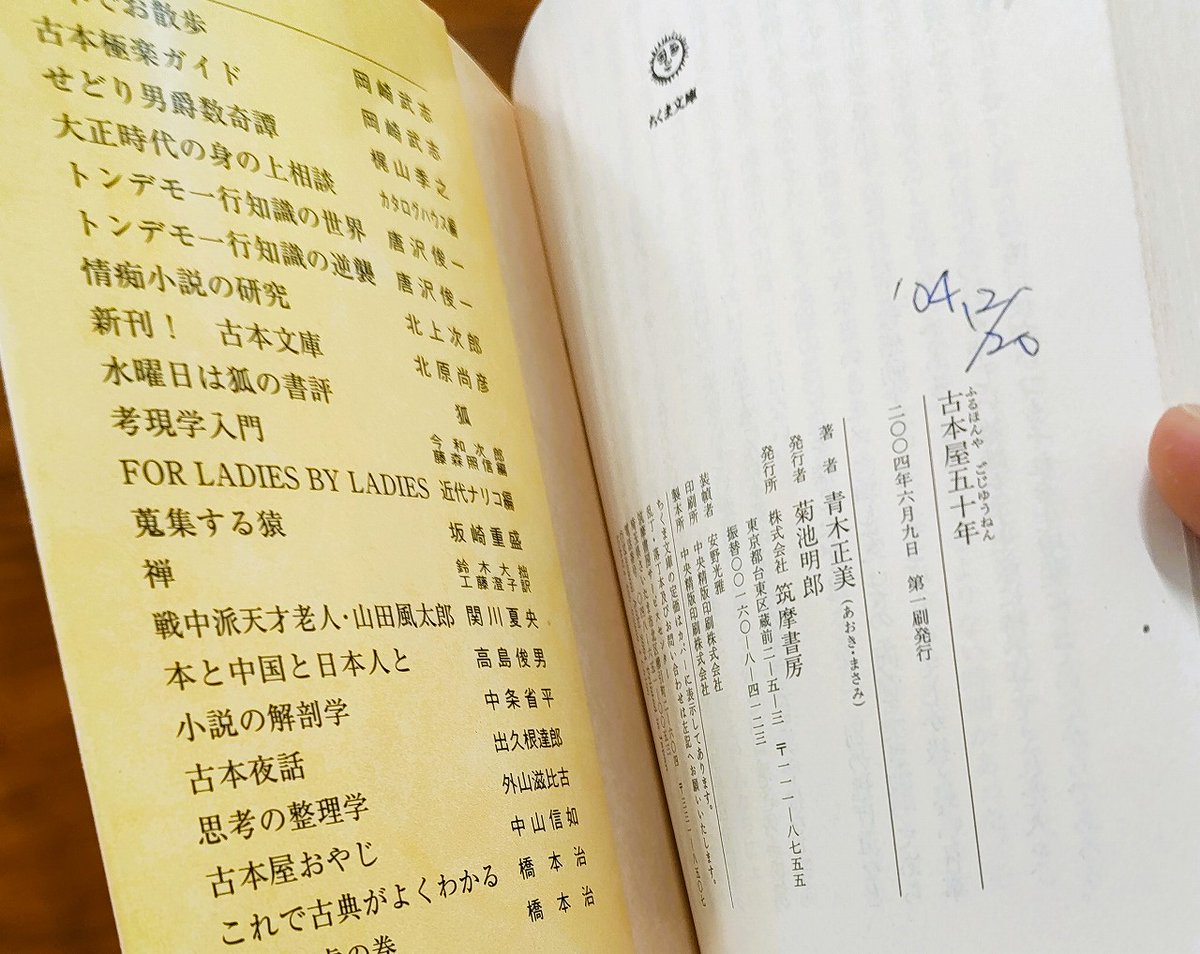 でお散歩 岡崎武志
古本極楽ガイド 岡崎武志
せどり男爵数奇譚 梶山季之
大正時代の身の上相談 カタログハウス編
トンデモ一行知識の世界 唐沢俊一
トンデモ一行知識の逆襲 唐沢俊一
情痴小説の研究 北上次郎
新刊! 古本文庫 北原尚彦
水曜日は狐の書評 狐
考現学入門 今和次郎 藤森照信編
FOR LADIES BY LADIES 近代ナリコ編
蒐集する猿 坂崎重盛
禅 鈴木大拙 工藤澄子訳
戦中派天才老人・山田風太郎 関川夏央
本と中国と日本人と 高島俊男
小説の解剖学 中条省平
古本夜話 出久根達郎
思考の整理学 外山滋比古
古本屋おやじ 中山信如
これで古典がよくわかる 橋本治
の巻 橋本治
ちくま文庫
'04 12/20
古本屋五十年
ふるほんや ごじゅうねん
二〇〇四年六月九日 第一刷発行
著者 青木正美(あおき・まさみ)
発行者 菊池明郎
発行所 株式会社 筑摩書房
東京都台東区蔵前二-五-三 〒一一一-八七五五
振替〇〇一六〇-八-四一二三
装幀者 安野光雅
印刷所 中央精版印刷株式会社
製本所 中央精版印刷株式会社
ちくま文庫の定価はカバーに表示してあります。